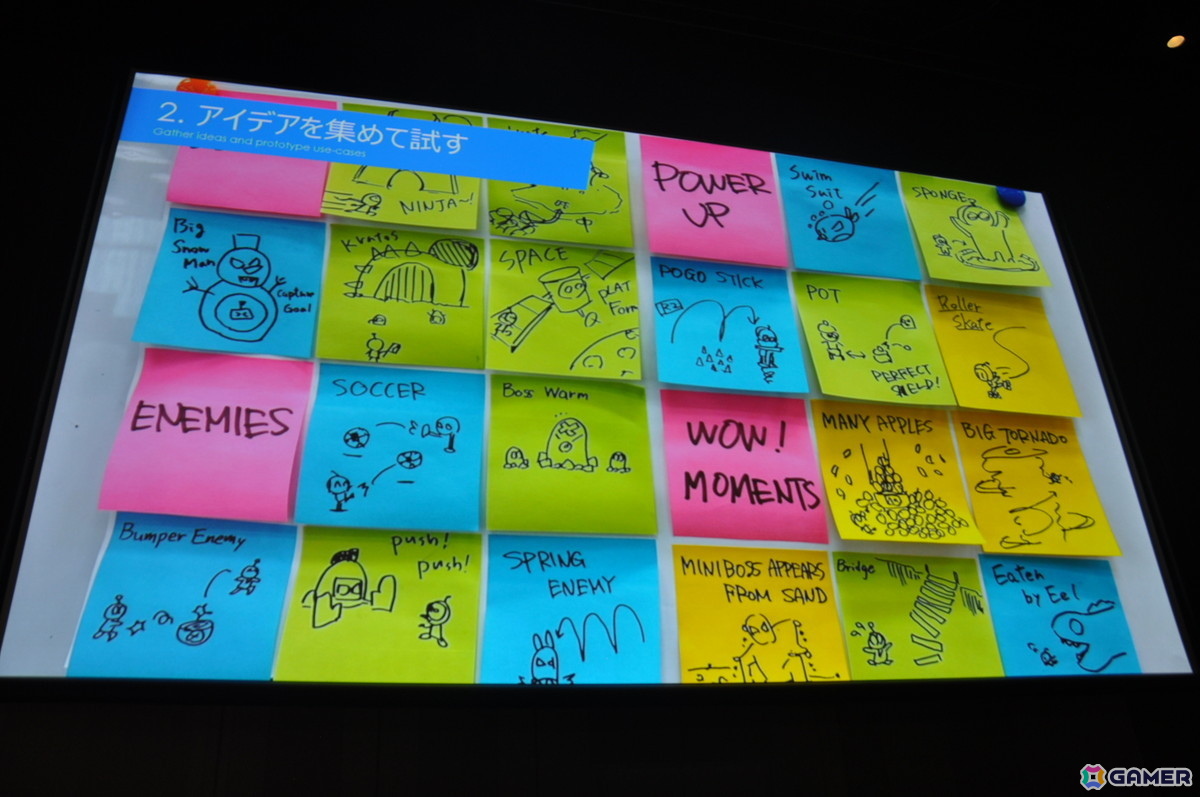 2. アイデアを集めて試す
Gather ideas and prototype use-cases
NINJA~!
POWER
UP
Swim
Suit
SPONGE
Big
Snow
Man
Capture
Goal
Kratos
SPACE
PLAT
Form
POGO STICK
POT
PERFECT
SHIELD!
Roller
Skate
ENEMIES
SOCCER
Boss Warm
WOW!
MOMENTS
MANY APPLES
BIG TORNADO
Bumper Enemy
push!
push!
SPRING
ENEMY
MINIBOSS APPEARS
FROM SAND
Bridge
Eaten
by Eel
GAMER